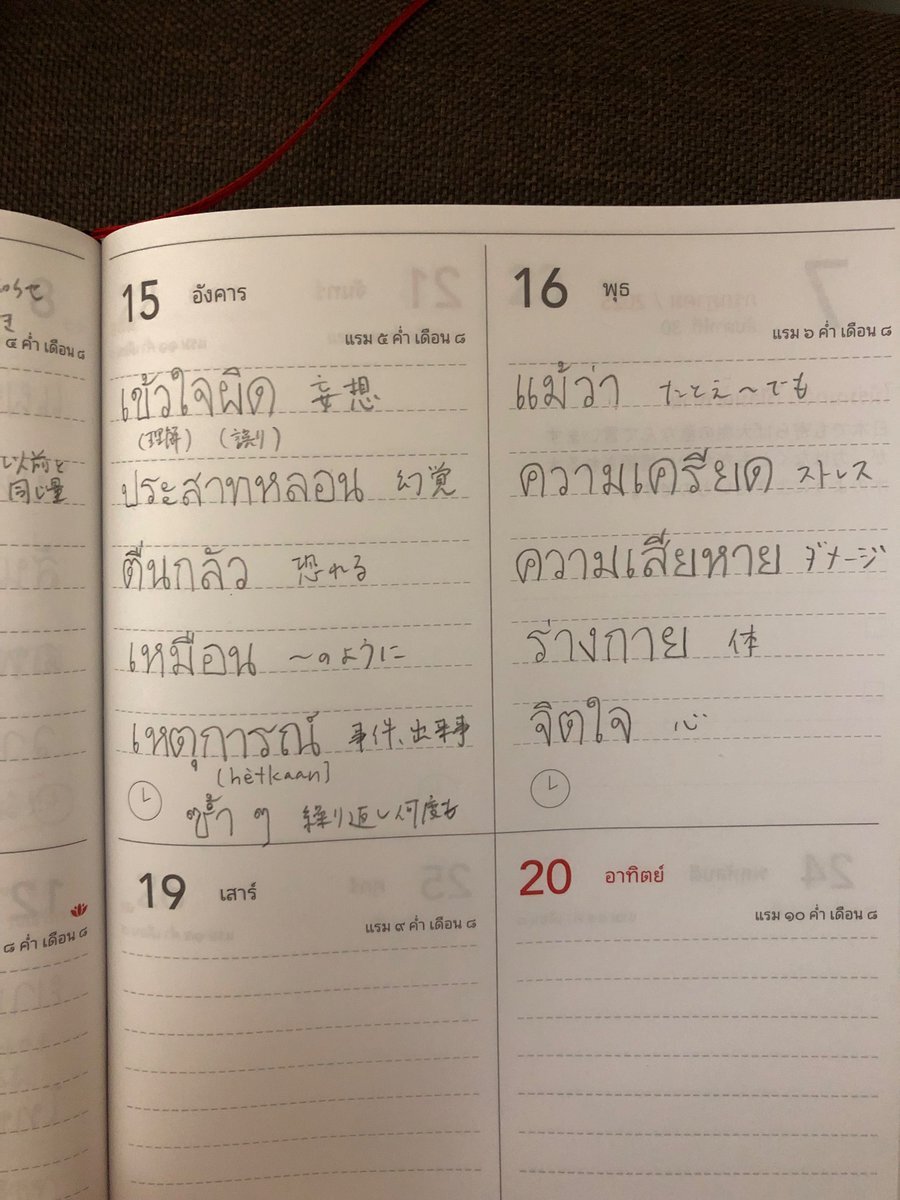 ๔ ค่ำ เดือน ๘
以前と
同じ量
๘ ค่ำ เดือน ๘
15 อังคาร
แรม ๕ ค่ำ เดือน ๘
เข้าใจผิด 妄想
(理解) (誤り)
ประสาทหลอน 幻覚
ตื่นกลัว 恐れる
เหมือน 〜のように
เหตุการณ์ 事件、出来事
(hètkaan)
ซ้ำ ๆ 繰り返し何度も
16 พุธ
แรม ๖ ค่ำ เดือน ๘
แม้ว่า たとえ〜でも
ความเครียด ストレス
ความเสียหาย ダメージ
ร่างกาย 体
จิตใจ 心
19 เสาร์
แรม ๙ ค่ำ เดือน ๘
20 อาทิตย์
แรม ๑๐ ค่ำ เดือน ๘